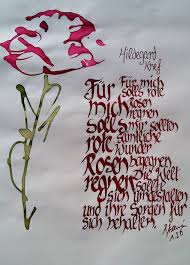 Hildegard
Knef
Für
mich
solls
rote
Rosen
regnen
Für mich
solls rote
Rosen
regnen
mir sollten
sämtliche
Wunder
begegnen
Die Welt
sollte
sich umgestalten
und ihre Sorgen für
sich behalten